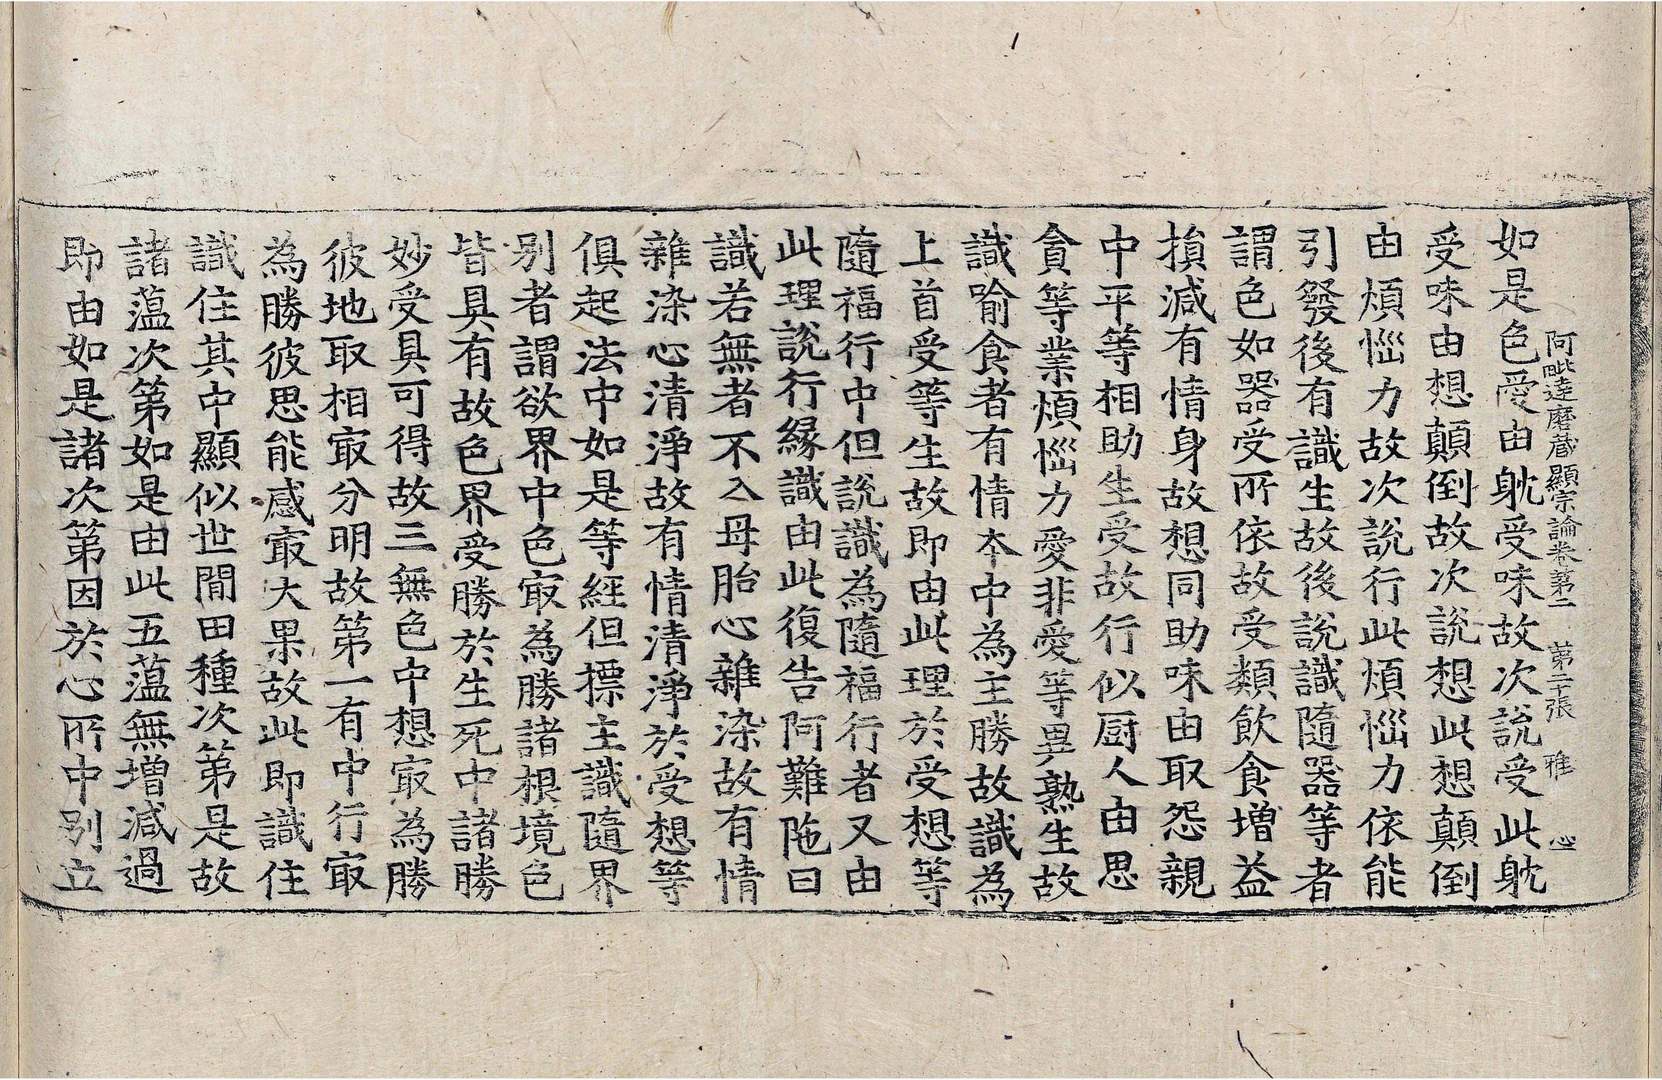 阿毗達磨蔵顯宗論卷第二 第二十張 雅 心
如是色愛由躭受味故次說受此躭
受味由想顛倒故次說想此想顛倒
由煩惱力故次說行此煩惱力依能
引發後有識生故後說識隨器等者
謂色如器受所依故受類飲食增益
損減有情身故想同助味由取怨親
中平等相助生受故行似厨人由思
貪等業煩惱力愛非愛等異熟生故
識喻食者有情夲中為主勝故識為
上首受等生故即由此理於受想等
隨福行中但說識為隨福行者又由
此理說行緣識由此復告阿難陁曰
識若無者不入母胎心雜染故有情
雜染心清淨故有情清淨於受想等
俱起法中如是等經但摽主識隨界
别者謂欲界中色㝡為勝諸根境色
皆具有故色界受勝於生死中諸勝
妙受具可得故三無色中想㝡為勝
彼地取相㝡分明故第一有中行㝡
為勝彼思能感㝡大果故此即識住
識住其中顯似世閒田種次第是故
諸薀次第如是由此五薀無增減過
即由如是諸次第因於心所中别立